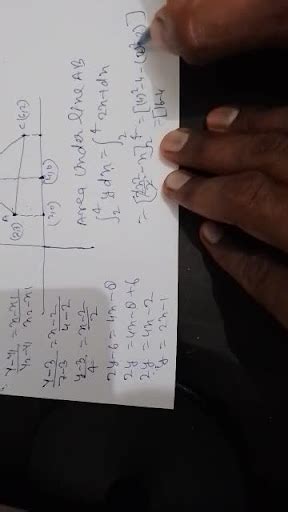 y-y1/y2-y1 = x-x1/x2-x1
y-3/7-3 = x-2/4-2
y-3/4 = x-2/2
2y-6 = 4x-8
2y = 4x-8+6
2y = 4x-2
y = 2x-1
A
(2,3)
C(6,2)
(2,0)
(4,0)
Area Under line AB
∫₂⁴ y dx = ∫₂⁴ 2x-1 dx
= [2x²/2 - x]₂⁴ = [(4)²-4-
= [16-4